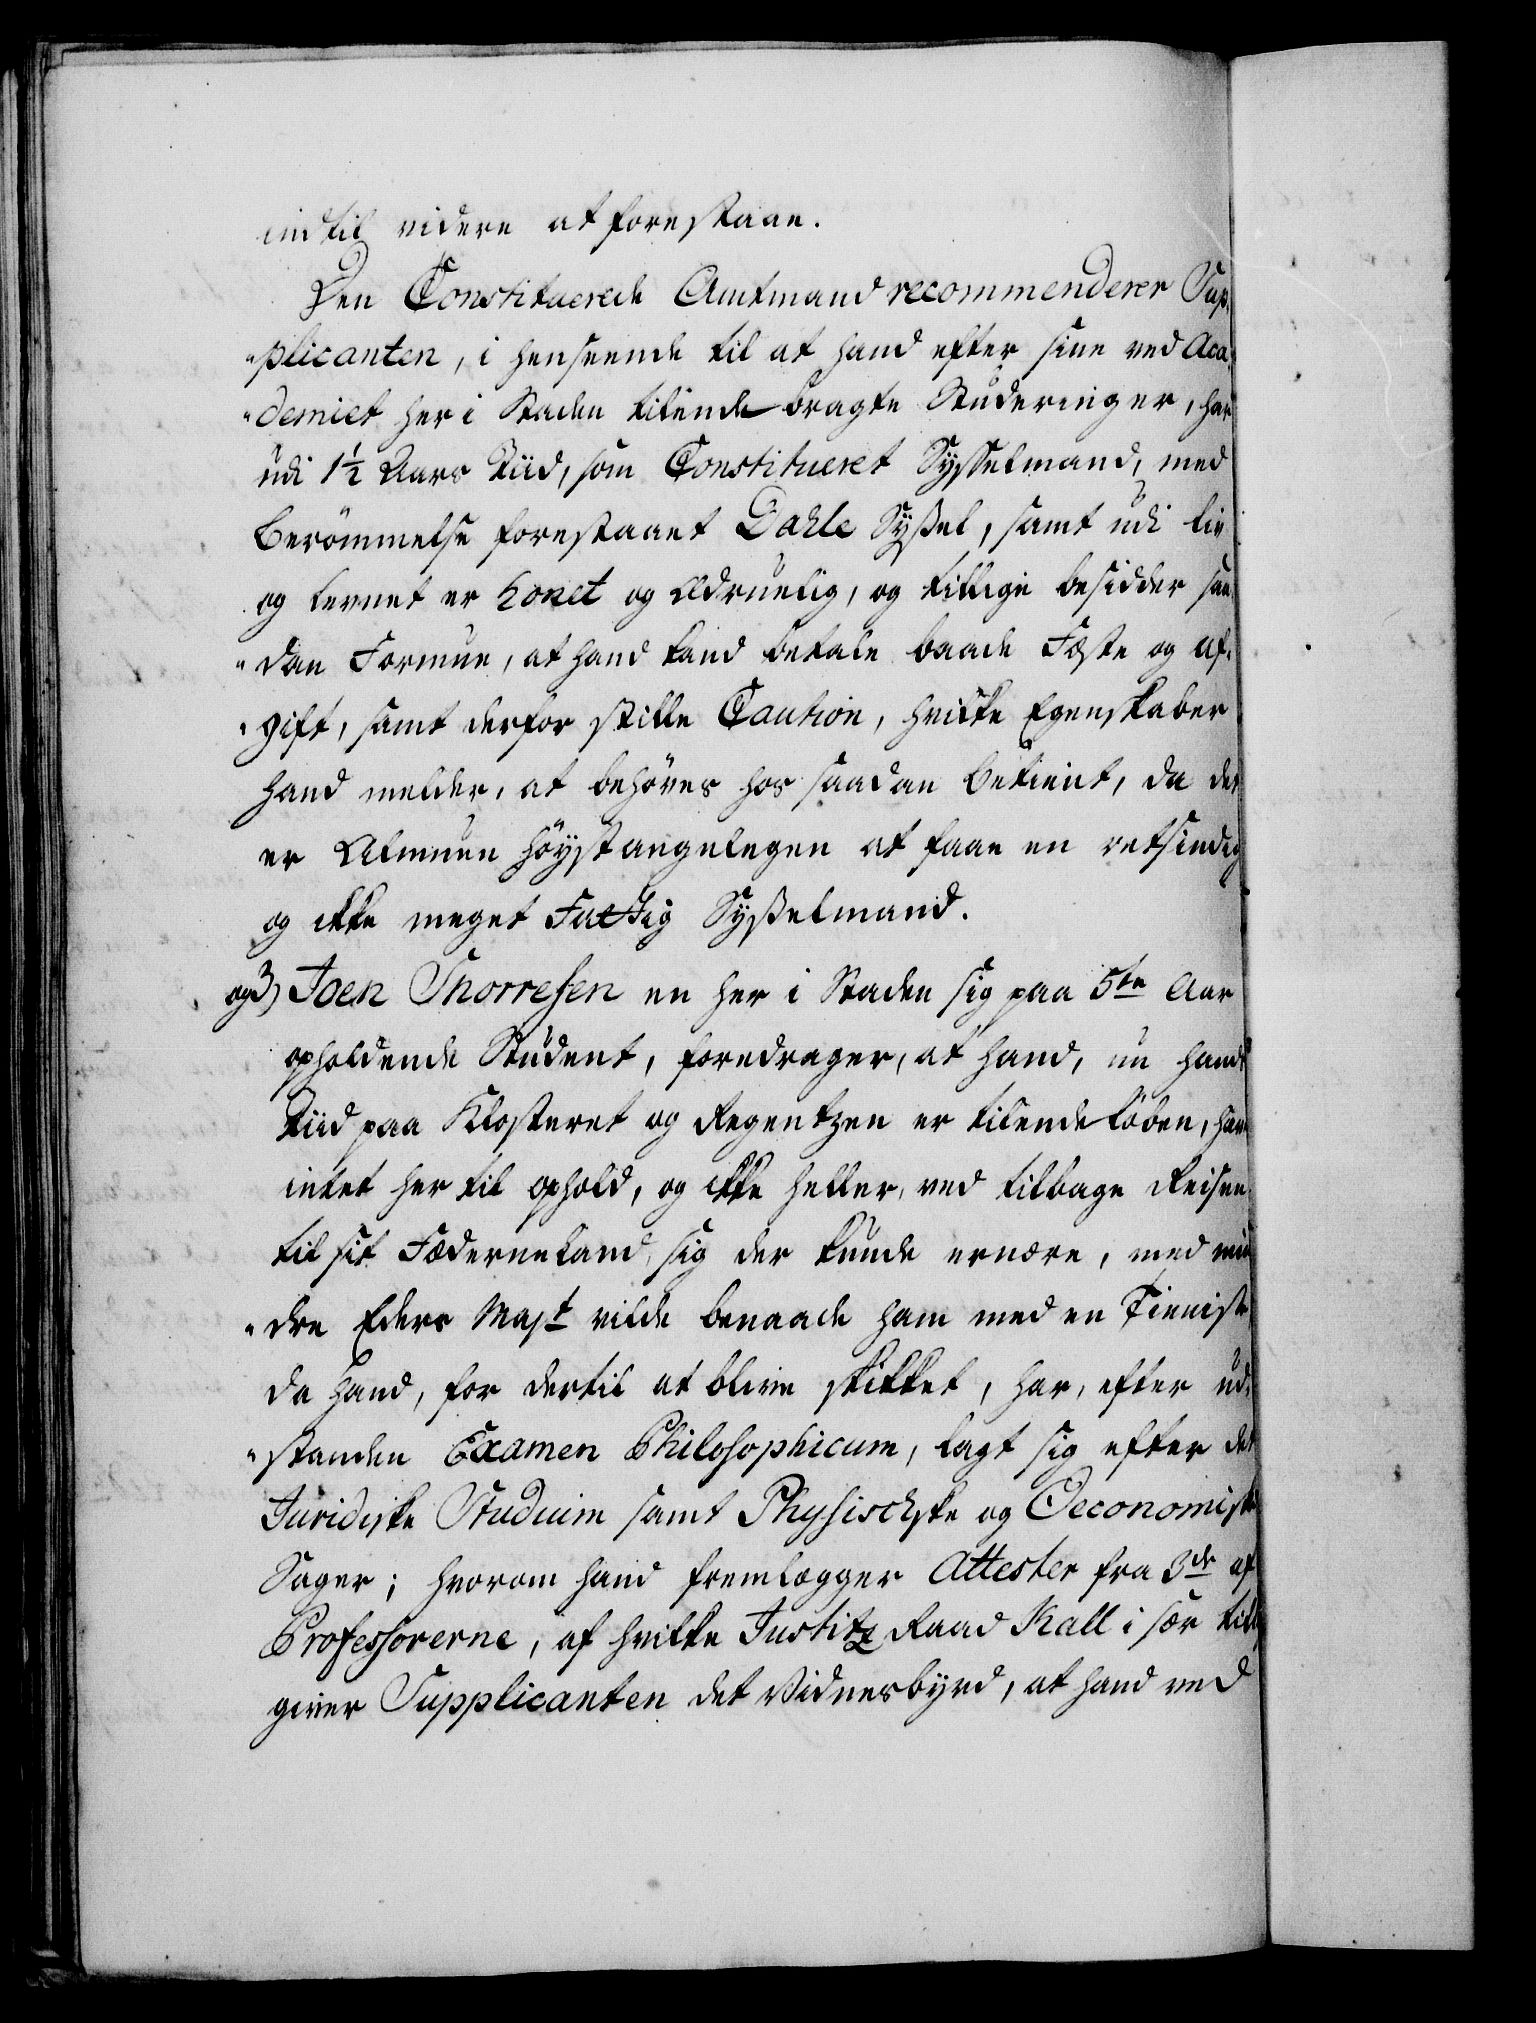 indtil videre at forestaae.
Den Constituerede Amtmand recommenderer Sup-
"plicanten, i henseende til at hand efter sine ved Aca-
"demiet her i Staden tilendebragte Studeringer, har
udi 1½ Aars Tiid, som Constitueret Sysselmand, med
Berömmelse forestaaet Dahle Syssel, samt udi liv
og levnet er honet og ædruelig, og tillige besidder saa-
"dan Formue, at hand kand betale baade Fæste og Af-
"gift, samt derfor stille Caution, hvilke Egenskaber
hand melder, at behöves hos saadan Betient, da det
er Almuen höystangelegen at faae en retsindig
og ikke meget Fattig Sysselmand.
og 3) Joen Thorresen en her i Staden sig paa 5te Aar
opholdende Student, foredrager, at hand, nu hands
Tiid paa Klosteret og Regentzen er tilendelöben, har
intet her til ophold, og ikke heller, ved tilbage Reisen
til sit Fæderneland, sig der kunde ernære, med min-
"dre Eders Majt vilde benaade ham med en Tieniste
da hand, for dertil at blive skikket, har, efter ud-
"standen Examen Philosophicum, lagt sig efter det
Juridiske Studium samt Physischske og Oeconomiske
Sager; hvorom hand fremlægger Attester fra 3de af
Professorerne, af hvilke Justitz Raad Kall i sær till-
giver Supplicanten det Vidnesbyrd, at hand ved